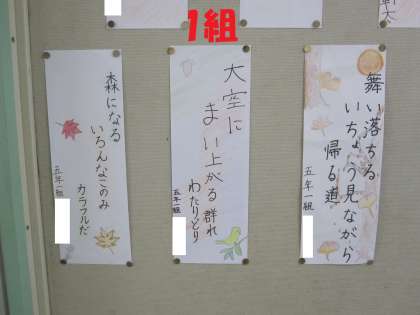 1組
舞い落ちる
いちょう見ながら
帰る道
五年一組
大空に
まい上がる群れ
わたりどり
五年一組
森になる
いろんなこのみ
カラフルだ
五年一組